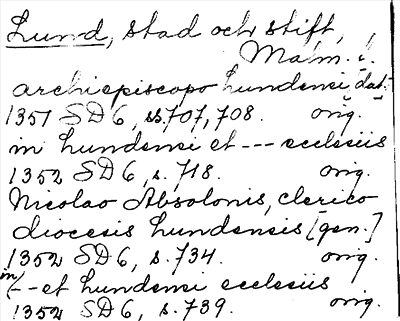 Lund, stad och stift,
Malm. l.
archiepiscopo Lundensi, dat.
1351 SD 6, ss. 707, 708. orig.
in Lundensi et --- ecclesiis
1352 SD 6, s. 718. orig.
Nicolao Absolonis, clerico
diocesis Lundensis [gen.]
1352 SD 6, s. 734. orig.
in (-- et Lundensi ecclesiis
1352 SD 6, s. 739. orig.